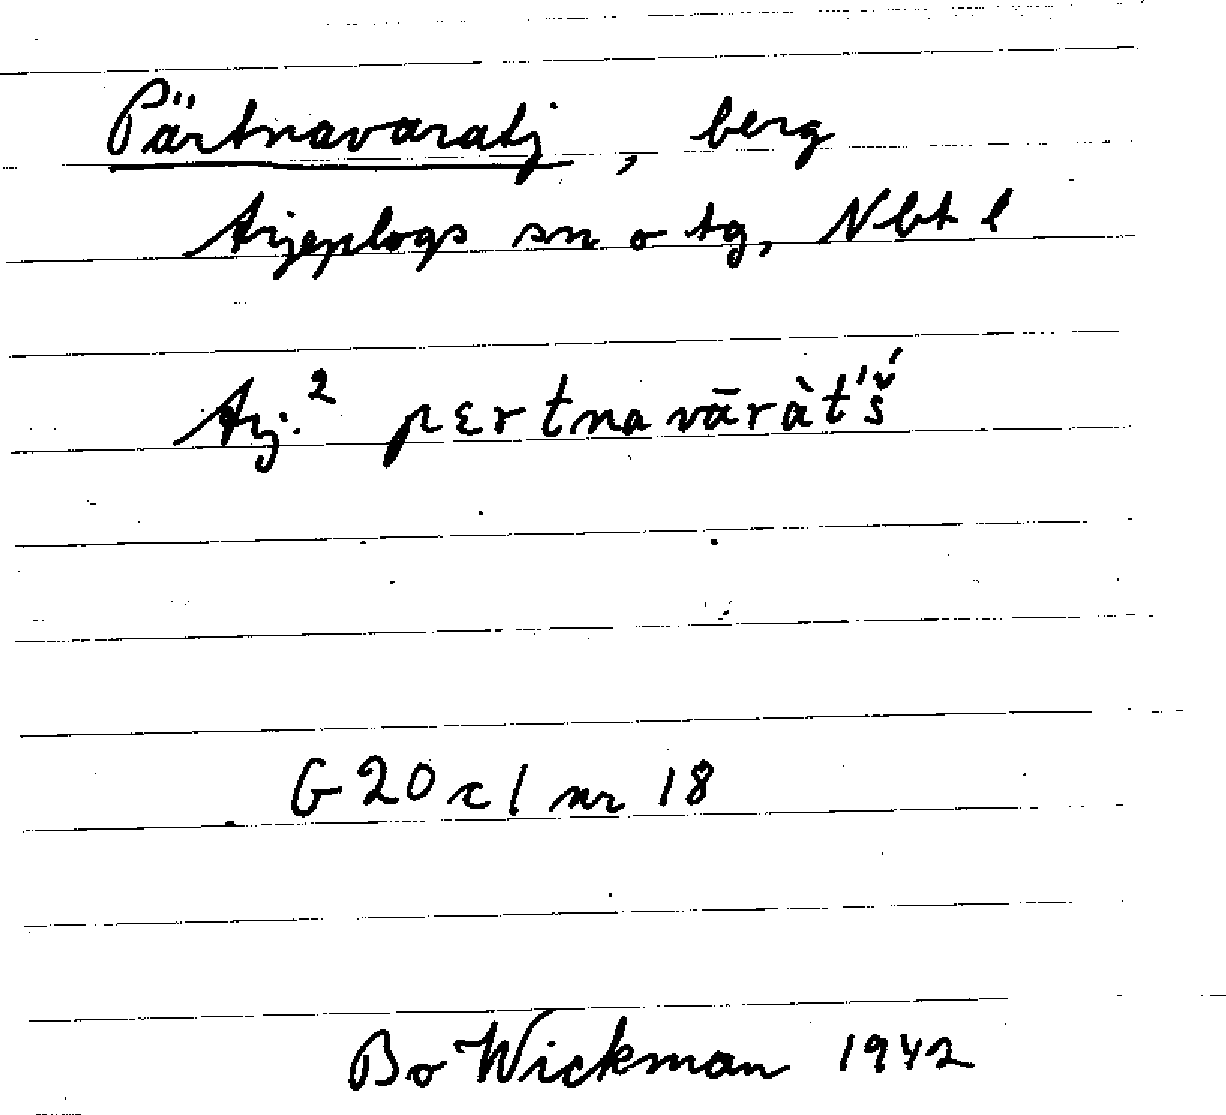 Pärtnavaratj, berg
Arjeplogs sn o tg, Nbt l
Arj.² pɛrtnavāràt́š́
G 20 c l nr 18
Bo Wickman 1942